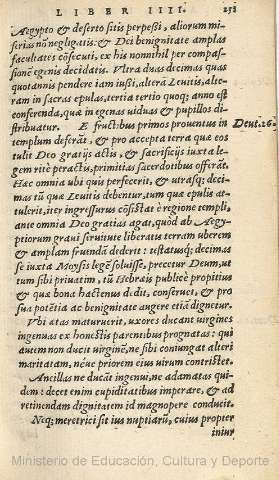 LIBER IIII. 258
Aegypto & deserto sitis perpessi, aliorum mi-
serias nō negligatis: & Dei benignitate amplas
facultates cōsecuti, ex his nonnihil per compas-
sione egenis decidatis. Vltra duas decimas quas
quotannis pendere iam iussi, altera Leuitis, alte-
ram in sacras epulas, tertia tertio quoq; anno est
conferenda, quæ in egenas viduas & pupillos di-
stribuatur. E fructibus primos prouentus in
Deut.26.
templum deferāt, & pro accepta terra quæ eos
tulit Deo gratijs actis, & sacrificijs iuxta le-
gem ritè peractis, primitias sacerdotibus offerāt.
Hæc omnia ubi quis perfecerit, & utrasq; deci-
mas tū quæ Leuitis debentur, tum quæ epulis at-
tulerit, iter ingressurus cōsistat è regione templi,
ante omnia Deo gratias agat, quòd ab Aegy-
ptiorum graui seruitute liberatis terram uberem
& amplam fruendā dederit: testatusq; decimas
se iuxta Moysis legē soluisse, precetur Deum, ut
tum sibi priuatim, tū Hebræis publicè propitius
& quæ bona hactenus dedit, conseruet, & pro
sua potētia ac benignitate augere etiā dignetur.
Vbi ætas maturuerit, uxores ducant uirgines
ingenuas ex honestis parentibus prognatas: qui
autem non ducit uirginē, ne sibi coniungat alteri
maritatam, neue priorem eius uirum contristet.
Ancillas ne ducāt ingenui, ne adamatas qui-
dem: decet enim cupiditatibus imperare, & ad
retinendam dignitatem id magnopere conducit.
Neq; meretrici sit ius nuptiarū, cuius propter
iniur
Ministerio de Educación, Cultura y Deporte